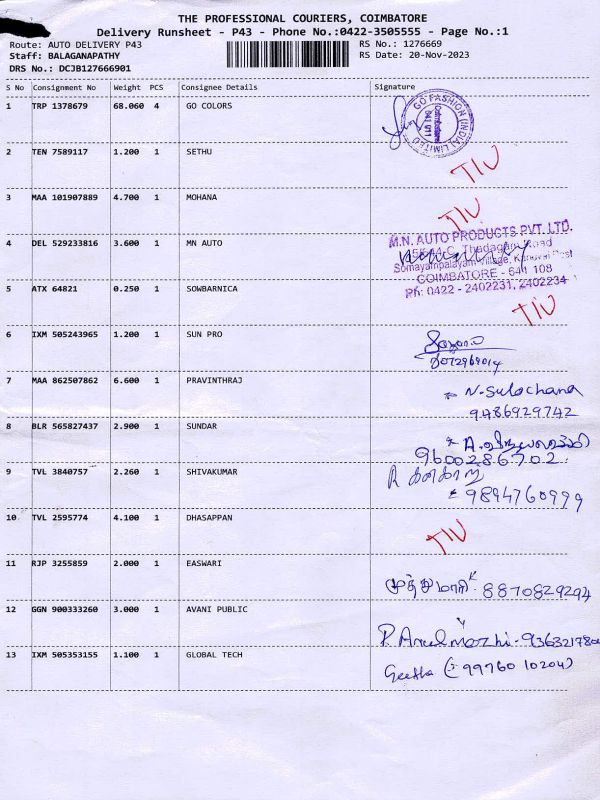 THE PROFESSIONAL COURIERS, COIMBATORE
Delivery Runsheet - P43 - Phone No.:0422-3505555 - Page No.:1
Route: AUTO DELIVERY P43
RS No.: 1276669
Staff: BALAGANAPATHY
RS Date: 20-Nov-2023
DRS No.: DCJB127666901
S No Consignment No Weight PCS Consignee Details Signature
1 TRP 1378679 68.060 4 GO COLORS
GO FASHION (INDIA) LIMITED
Coimbatore
641 011
2 TEN 7589117 1.200 1 SETHU
TIU
3 MAA 101907889 4.700 1 MOHANA
TIU
4 DEL 529233816 3.600 1 MN AUTO
M.N. AUTO PRODUCTS PVT. LTD.
Thadagam Road
Somayampalayam Village, Kanuvai Post
COIMBATORE - 641 108
Ph: 0422 - 2402231, 2402234
5 ATX 64821 0.250 1 SOWBARNICA
TIU
6 IXM 505243965 1.200 1 SUN PRO
7 MAA 862507862 6.600 1 PRAVINTHRAJ
N. Sulochana
9486929742
8 BLR 565827437 2.900 1 SUNDAR
9600286702
9 TVL 3840757 2.260 1 SHIVAKUMAR
9894760999
10 TVL 2595774 4.100 1 DHASAPPAN
TIU
11 RJP 3255859 2.000 1 EASWARI
முத்துமாரி 8870829294
12 GGN 900333260 3.000 1 AVANI PUBLIC
P. Arulmozhi -
13 IXM 505353155 1.100 1 GLOBAL TECH
Geetha (: 99760 10204)